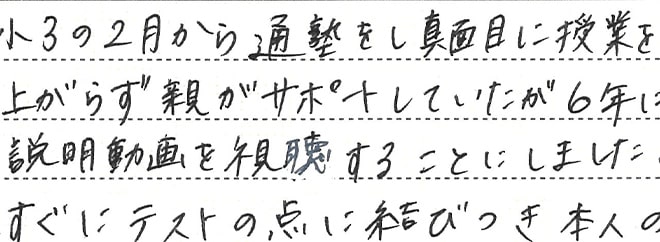 小3の2月から通塾をし真面目に授業を
上がらず親がサポートしていたが6年に
説明動画を視聴することにしました。
すぐにテストの点に結びつき本人の